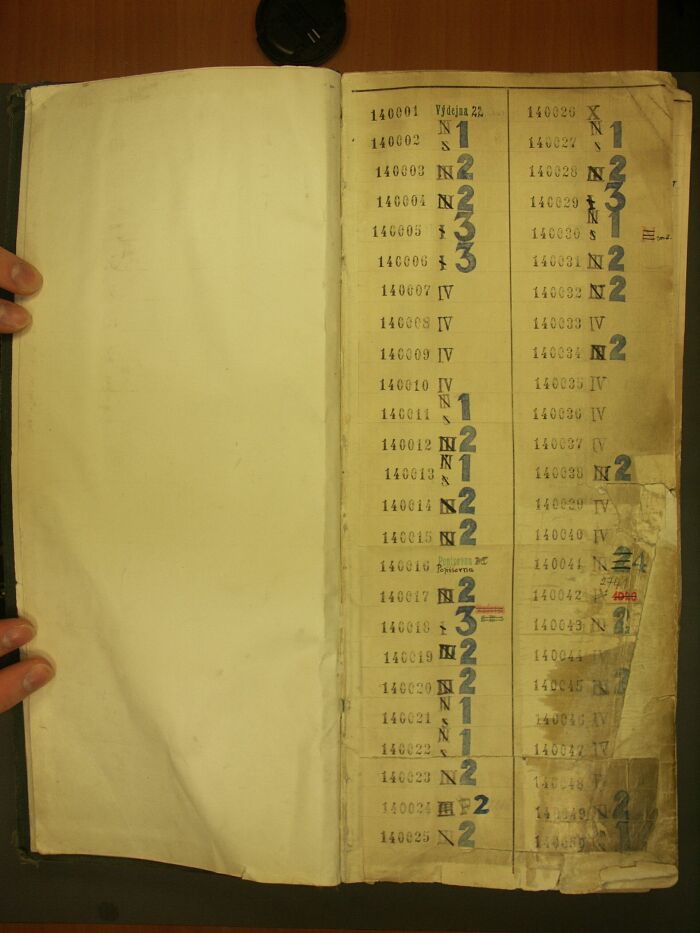 140001 Výdejna 22.
140002 N s 1
140003 III 2
140004 III 2
140005 I 3
140006 I 3
140007 IV
140008 IV
140009 IV
140010 IV
140011 N s 1
140012 III 2
140013 N s 1
140014 III 2
140015 III 2
140016 Popisovna
Popisovna
140017 III 2
140018 I 3
140019 III 2
140020 III 2
140021 N s 1
140022 N s 1
140023 III 2
140024 III F 2
140025 III 2
140026 X
140027 N s 1
140028 III 2
140029 I 3
140030 N s 1
III.
140031 III 2
140032 III 2
140033 IV
140034 III 2
140035 IV
140036 IV
140037 IV
140038 III 2
140039 IV
140040 IV
140041 III 4
140042 IV
140043 III 2
140044 IV
140045 III 2
140046 IV
140047 IV
140048
140049 2
140050 1